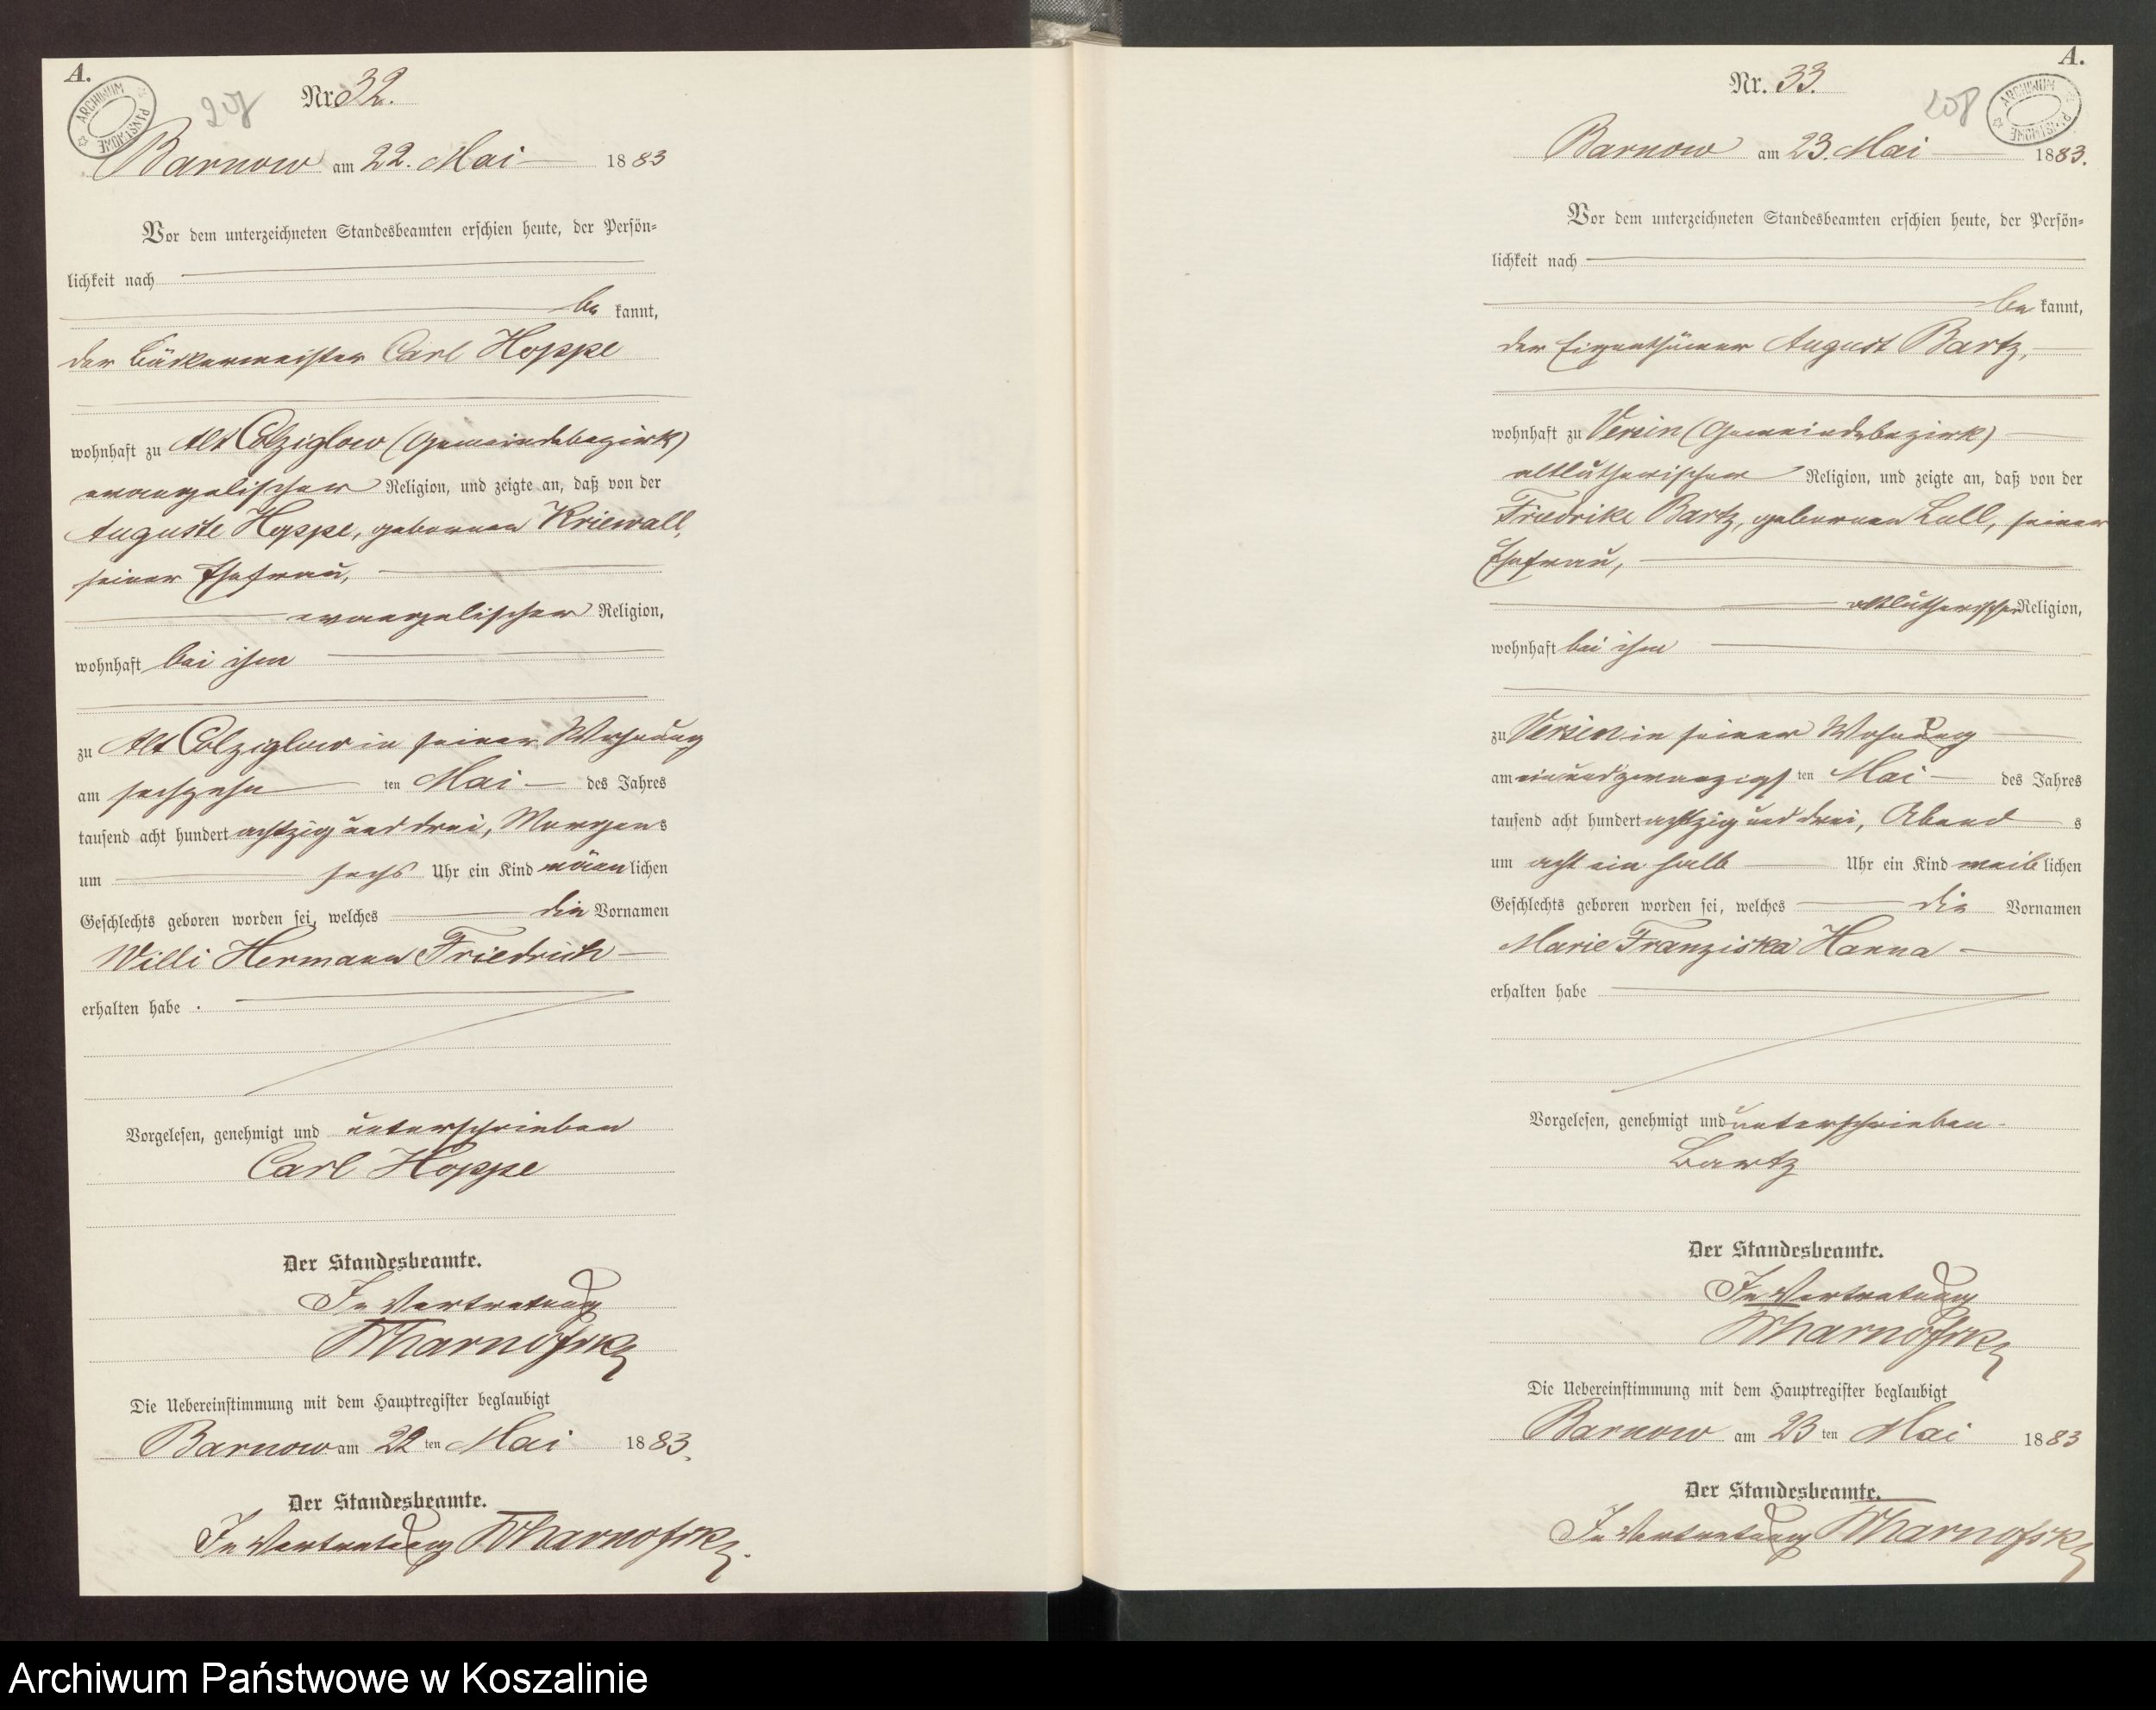 A.
ARCHIWUM PAŃSTWOWE
207
Nr. 32.
Barnow am 22. Mai 1883
Vor dem unterzeichneten Standesbeamten erschien heute, der Persön-
lichkeit nach
be kannt,
der Bäckermeister Carl Hoppe
wohnhaft zu Alt Colziglow (Gemeindebezirk)
evangelischer Religion, und zeigte an, daß von der
Auguste Hoppe, geborenen Kriewall,
seiner Ehefrau,
evangelischer Religion,
wohnhaft bei ihm
zu Alt Colziglow in seiner Wohnung
am sechzehn ten Mai des Jahres
tausend acht hundert achtzig und drei, Morgens
um sechs Uhr ein Kind männlichen
Geschlechts geboren worden sei, welches die Vornamen
Willi Hermann Friedrich
erhalten habe.
Vorgelesen, genehmigt und unterschrieben
Carl Hoppe
Der Standesbeamte.
In Vertretung
Die Uebereinstimmung mit dem Hauptregister beglaubigt
Barnow am 22 ten Mai 1883.
Der Standesbeamte.
In Vertretung
A.
ARCHIWUM PAŃSTWOWE
208
Nr. 33.
Barnow am 23. Mai 1883.
Vor dem unterzeichneten Standesbeamten erschien heute, der Persön-
lichkeit nach
be kannt,
der Eigenthümer August Bartz,
wohnhaft zu Versin (Gemeindebezirk)
altlutherischer Religion, und zeigte an, daß von der
Friedrike Bartz, geborenen Lull, seiner
Ehefrau,
altlutherischer Religion,
wohnhaft bei ihm
zu Versin in seiner Wohnung
am einundzwanzigs ten Mai des Jahres
tausend acht hundert achtzig und drei, Abends
um acht ein halb Uhr ein Kind weiblichen
Geschlechts geboren worden sei, welches die Vornamen
Marie Franziska Hanna
erhalten habe
Vorgelesen, genehmigt und unterschrieben.
Bartz
Der Standesbeamte.
In Vertretung
Die Uebereinstimmung mit dem Hauptregister beglaubigt
Barnow am 23 ten Mai 1883
Der Standesbeamte.
In Vertretung
Archiwum Państwowe w Koszalinie